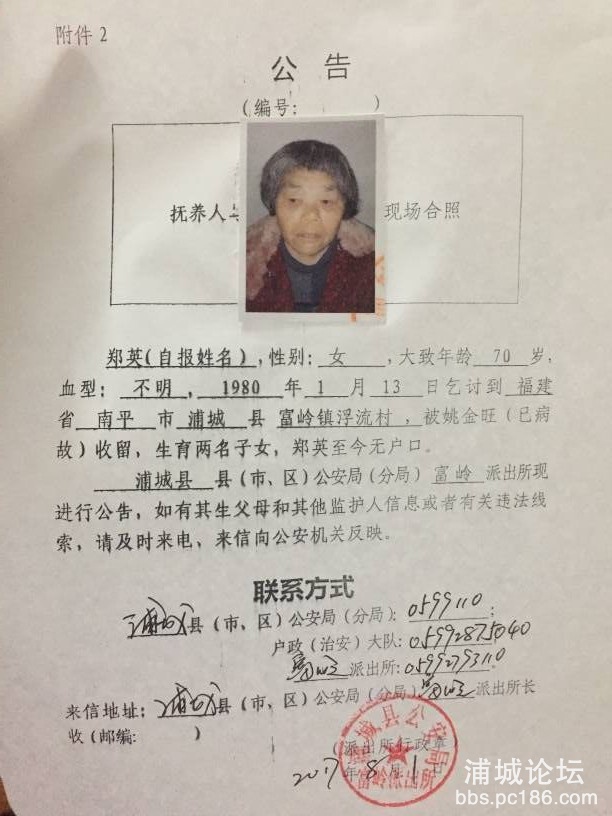 附件 2
公 告
(编号: )
抚养人与 现场合照
郑英(自报姓名),性别: 女 ,大致年龄 70 岁,
血型: 不明 , 1980 年 1 月 13 日乞讨到 福建
省 南平 市 浦城 县 富岭镇浮流村 ,被姚金旺(已病
故)收留,生育两名子女,郑英至今无户口。
浦城县 县(市、区)公安局(分局) 富岭 派出所现
进行公告,如有其生父母和其他监护人信息或者有关违法线
索,请及时来电、来信向公安机关反映。
联系方式
浦城县(市、区)公安局(分局): 0599110;
户政(治安)大队: 05992875040
富岭派出所: 05992793110
来信地址: 浦城县(市、区)公安局(分局) 富岭 派出所长
收(邮编: )
(派出所行政章)
2017 年 8 月 1 日
浦城县公安局
富岭派出所
浦城论坛
bbs.pc186.com